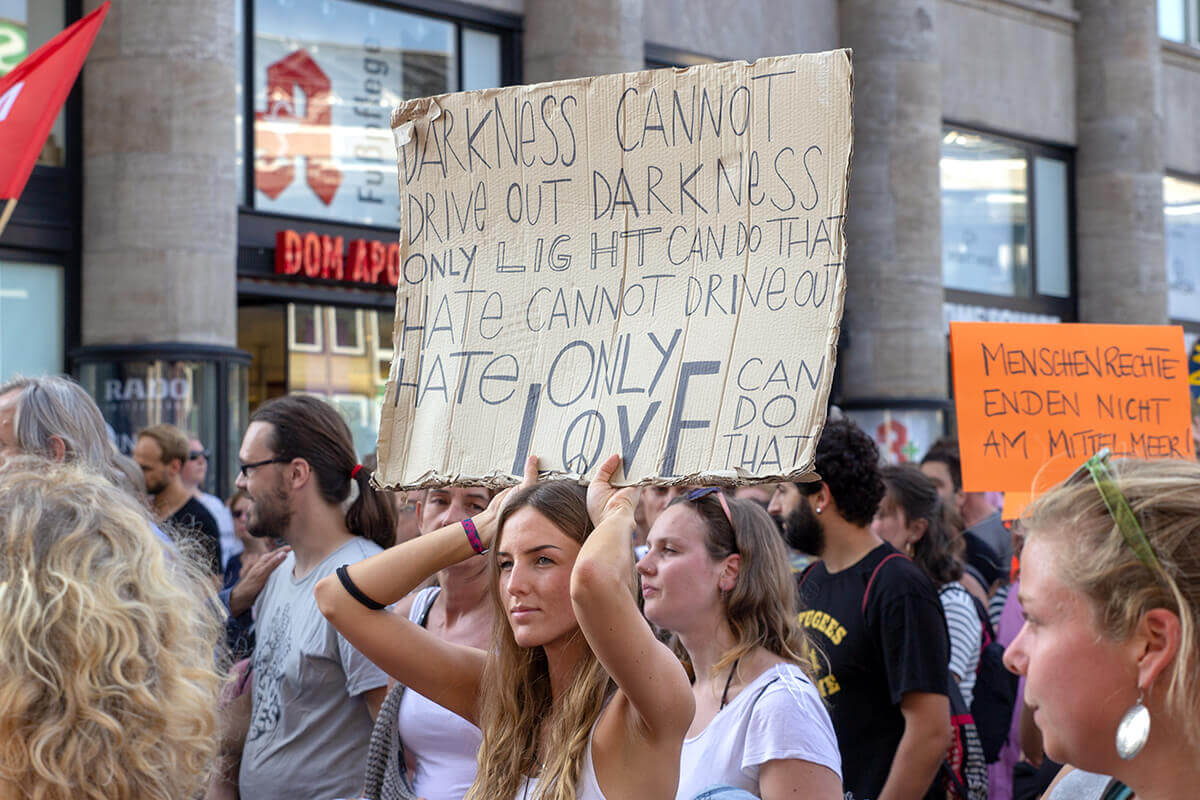 Fußpflege
DOM APO
RADO
DARKNESS CANNOT
DRIVE OUT DARKNESS
ONLY LIGHT CAN DO THAT
HATE CANNOT DRIVE OUT
HATE ONLY
LOVE
CAN
DO
THAT
MENSCHENRECHTE
ENDEN NICHT
AM MITTELMEER!
REFUGEES